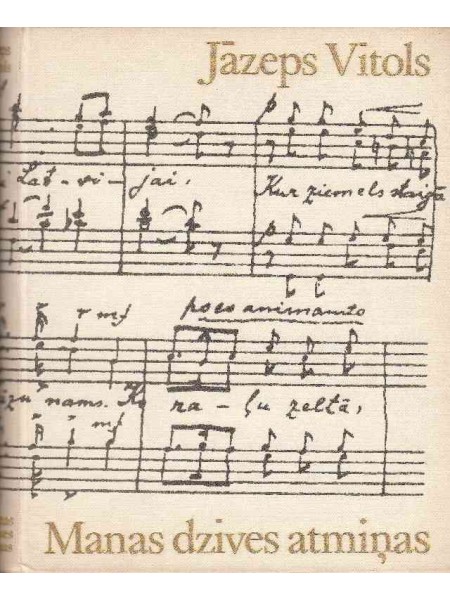 Jāzeps Vītols
Lat-vi-jai, Kur ziemels staigā
poco animanto
mf
nams. Ko-ra-ļu zeltā,
mf
Manas dzīves atmiņas